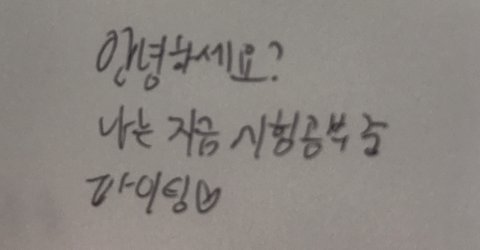 안녕하세요?
나는 지금 시험공부 중
파이팅♡